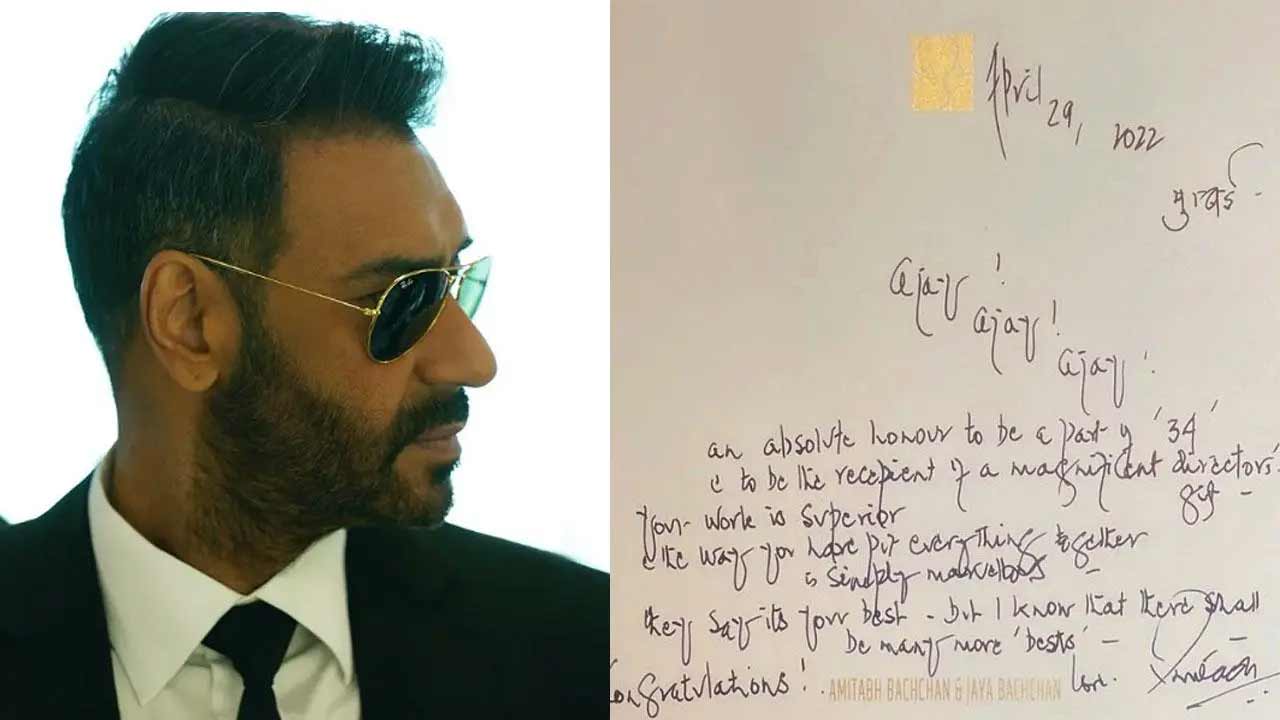 Ray-Ban
April 29, 2022
मुम्बई -
Ajay !
Ajay !
Ajay !
an absolute honour to be a part of '34'
& to be the recepient of a magnificent directors'
gift -
your work is superior
& the way you have put everything together
is simply marvellous -
they say its your best - but I know that there shall
be many more 'bests' -
Congratulations !
AMITABH BACHCHAN & JAYA BACHCHAN
love.